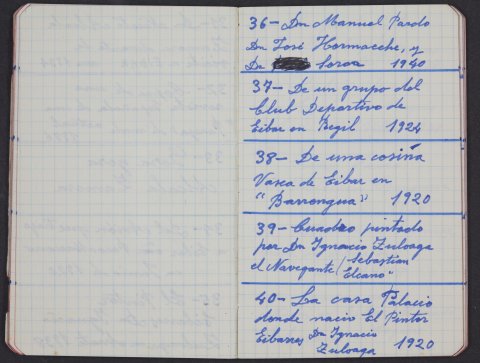 36- Dn Manuel Pardo
Dn José Hormaeche, y
Dn Soroa 1940
37- De un grupo del
Club Deportivo de
Eibar en Regil 1924
38- De una cosiña
Vasca de Eibar en
"Barrongua" 1920
39- Cuadro pintado
por Dn Ignacio Zuloaga
el Navegante/Sebastian
Elcano"
40- La casa Palacio
donde nacio El Pintor
Eibarres Dn Ignacio
Zuloaga 1920